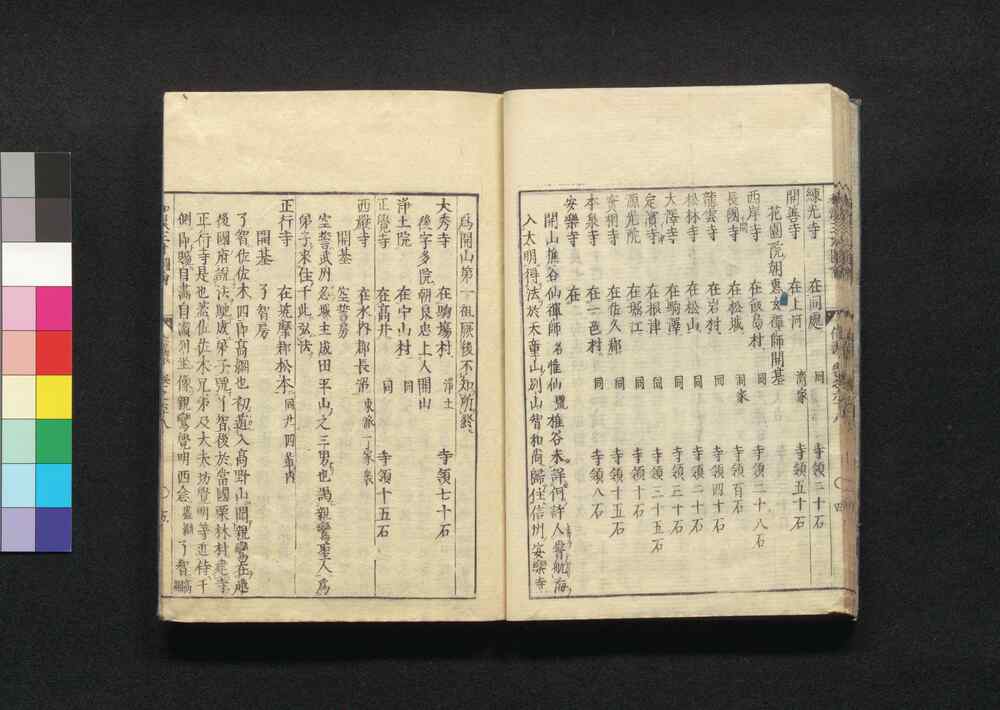 練光寺 在同處 同 寺領二十石
開善寺 在上河 濟家 寺領五十石
花園院朝 禪師開基
西岸寺 在飯島村 同 寺領二十八石
長國寺 在松城 洞家 寺領百石
龍雲寺 在岩村 同 寺領四十石
松林寺 在松山 同 寺領二十石
大澤寺 在駒澤 同 寺領三十石
定津寺 在根津 同 寺領三十五石
源光院 在堀江 同 寺領十石
安明寺 在佐久郡 同 寺領十五石
本泉寺 在一邑村 同 寺領八石
安樂寺 在
開山樵谷仙禪師名惟仙號樵谷未詳何許人嘗航海
入太明得法於天童山別山智和尚歸住信州安樂寺
爲開山第一祖厥後不知所終
大秀寺 在駒場村 淨土 寺領七十石
後宇多院朝良忠上人開山
淨土院 在中山村 同
正覺寺 在高井 同 寺領十五石
西嚴寺 在水内郡長沼 東派一家衆
開基 空誓房
空誓武州 城主成田平山之三男也爲親鸞聖人爲
弟子來住于此弘法
正行寺 在筑摩郡松本
開基 了智房
了智佐佐木四郎高綱也初遁入高野山聞親鸞在越
後國府説法馳 成弟子號了智後於當國栗林村建寺
正行寺是也蓋佐佐木兄弟及大夫坊覺明等追侍于
側 自畵自 列坐像親鸞覺明西念 了智